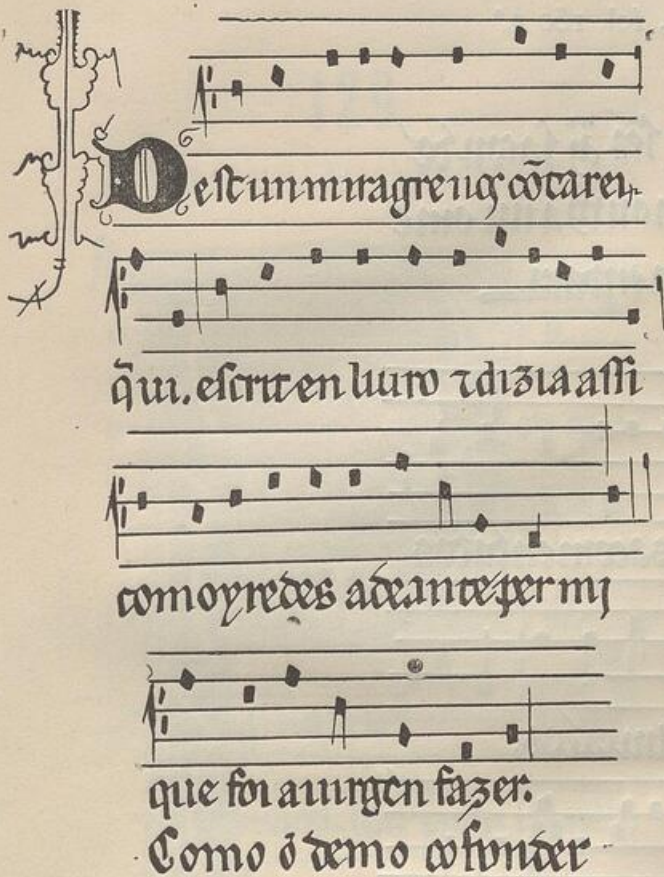 Dest un miragre uos cõtarei
q̃ ui. escrit en liuro ⁊ dizia assi
com oyredes adeante per mi
que foi a uirgen fazer.
Como o demo cofonder